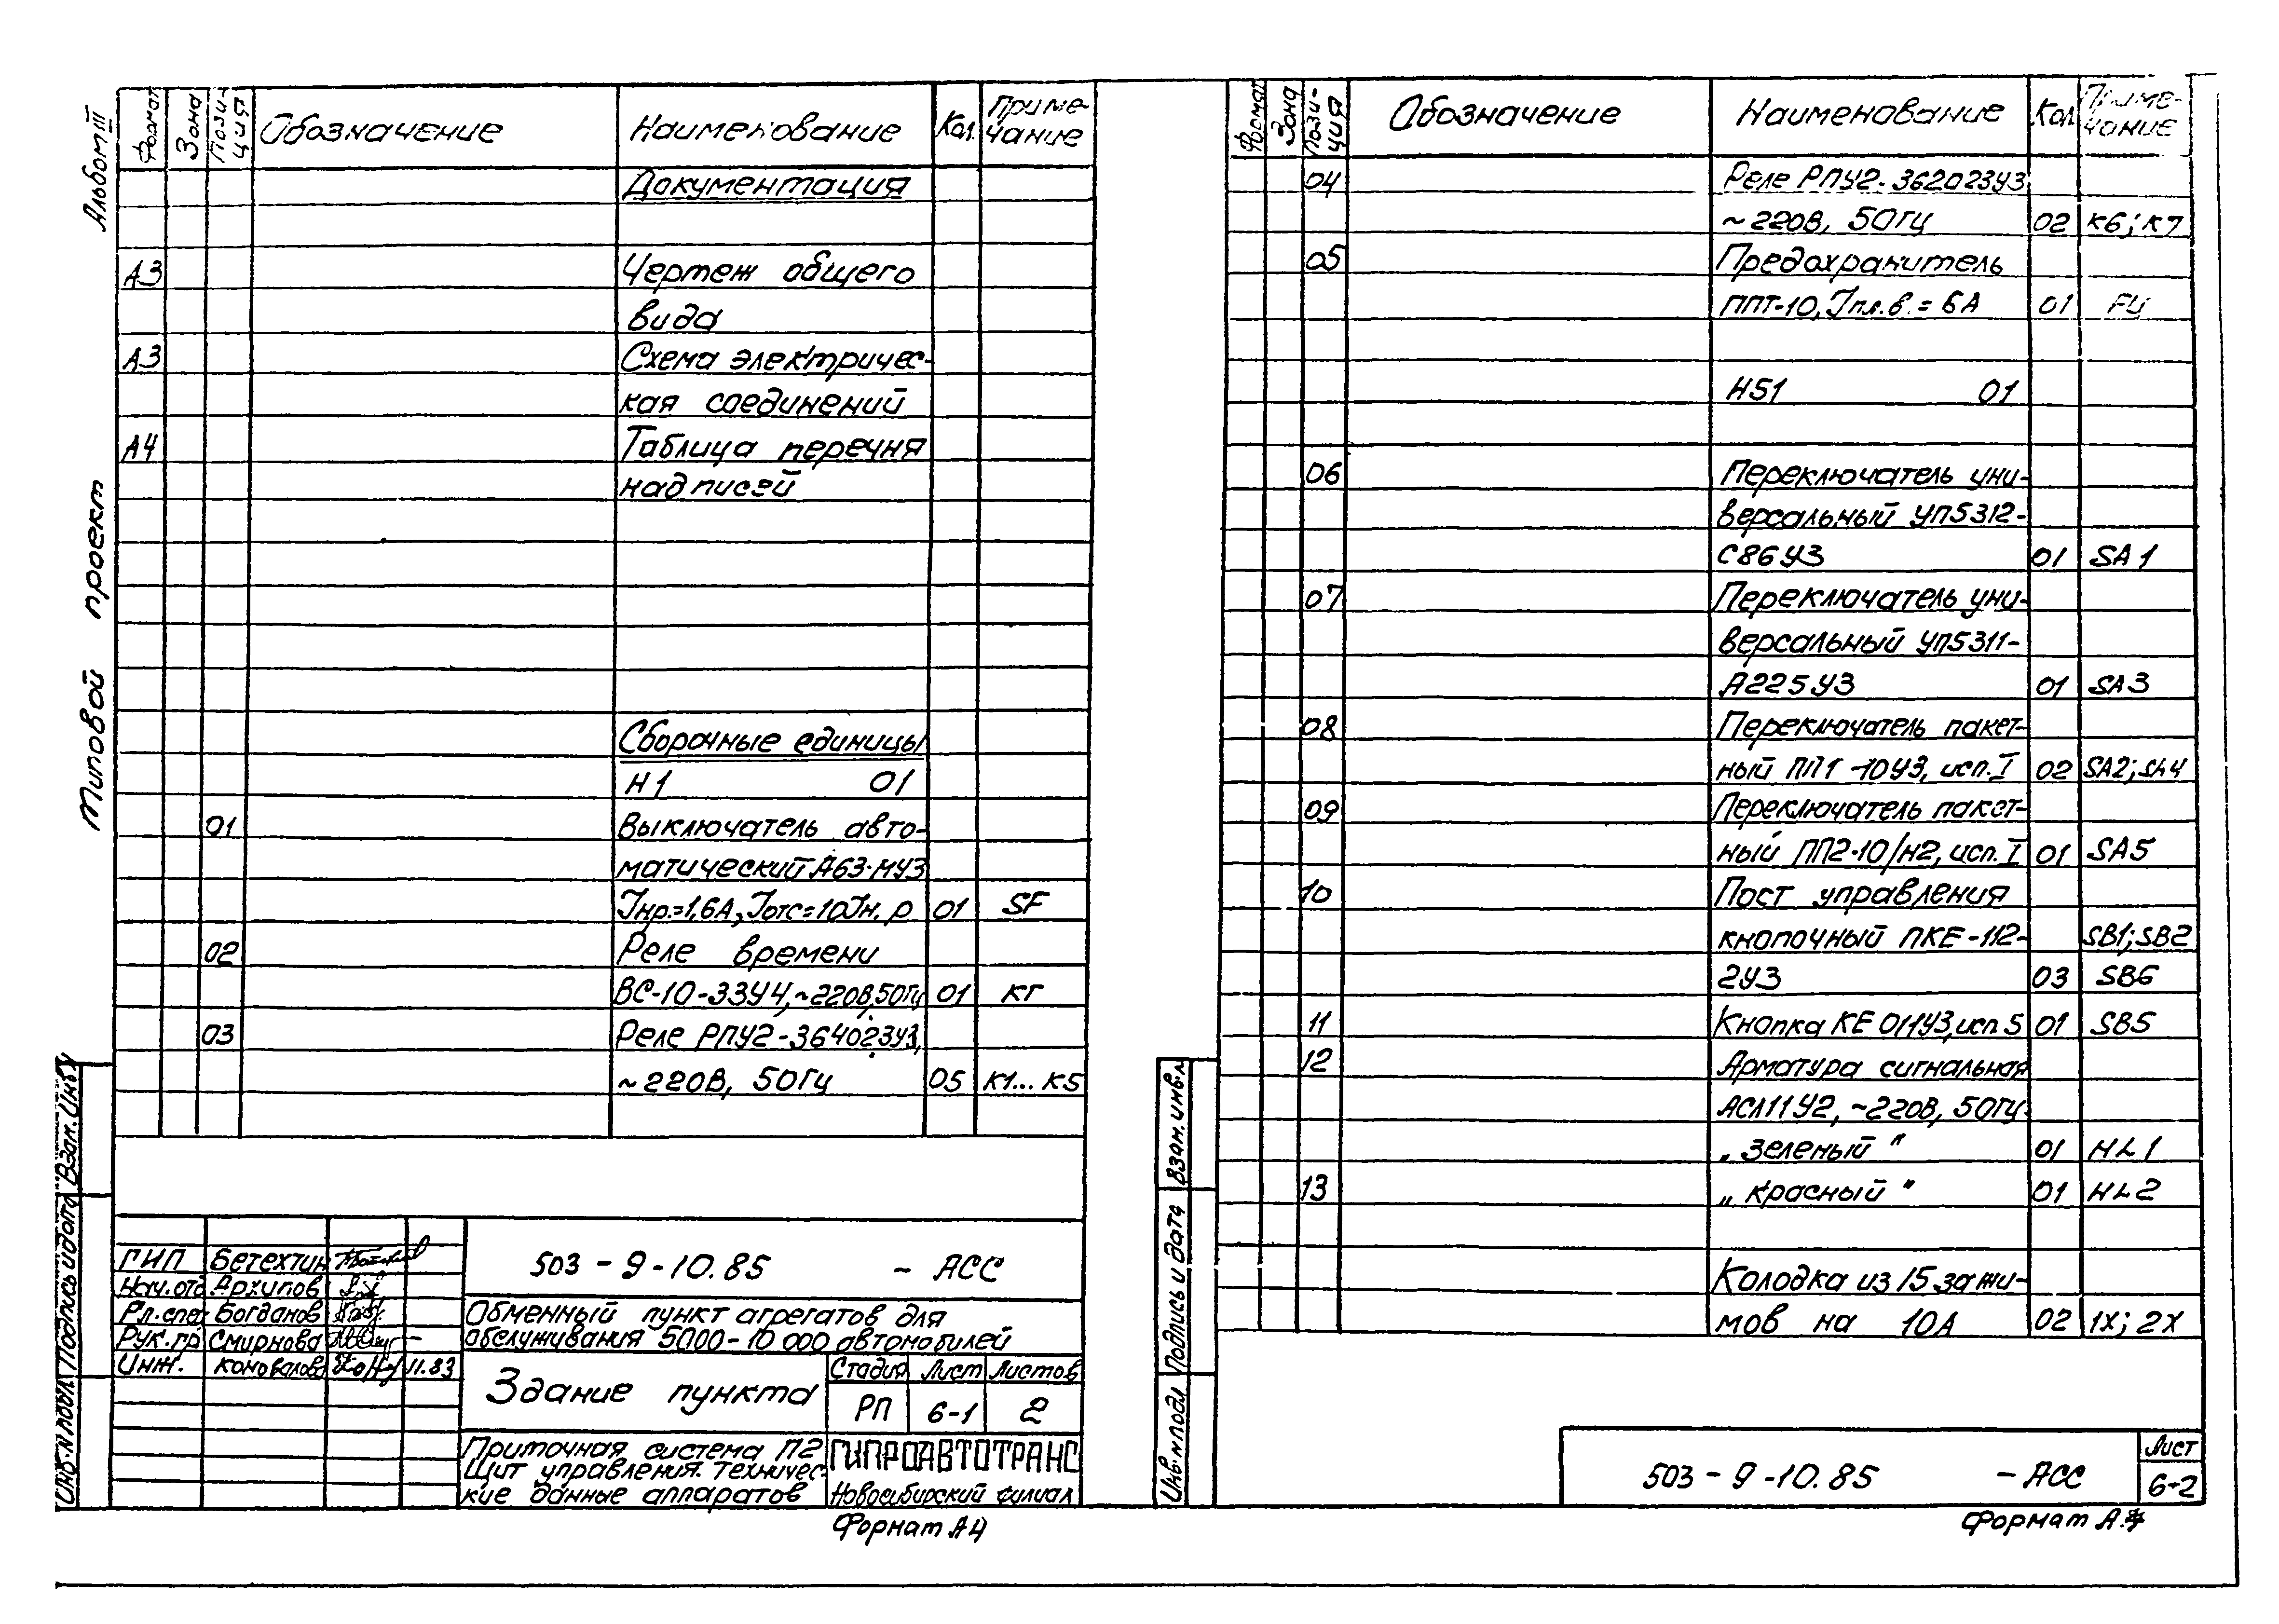 Альбом III
Типовой проект
Формат Зона Позиция Обозначение Наименование Кол. Приме-чание
Документация
А3 Чертеж общего
вида
А3 Схема электричес-
кая соединений
А4 Таблица перечня
надписей
Сборочные единицы
Н1 01
01 Выключатель авто-
матический А63-МУ3
Iнр.=1,6А, Iотс=10Iн.р 01 SF
02 Реле времени
ВС-10-33У4,~220В,50Гц 01 КТ
03 Реле РПУ2-364023У3,
~220В, 50Гц 05 К1...К5
Взам. инв.
Подпись и дата
Инв. N подл.
ГИП Бетехтин
Нач. отд Архипов
Гл. спец Богданов
Рук. гр Смирнова
Инж. Коновалова 11.83
503-9-10.85 - АСС
Обменный пункт агрегатов для
обслуживания 5000-10 000 автомобилей
Здание пункта
Стадия Лист Листов
РП 6-1 2
Приточная система П2
Щит управления. Техничес-
кие данные аппаратов
ГИПРОАВТОТРАНС
Новосибирский филиал
Формат А4
Формат Зона Позиция Обозначение Наименование Кол. Приме-чание
04 Реле РПУ2-362023У3
~220В, 50Гц 02 К6; К7
05 Предохранитель
ППТ-10, Iпл.в.=6А 01 FU
Н51 01
06 Переключатель уни-
версальный УП5312-
С86У3 01 SA1
07 Переключатель уни-
версальный УП5311-
А225У3 01 SA3
08 Переключатель пакет-
ный ПП1-10У3, исп. I 02 SA2; SA4
09 Переключатель пакет-
ный ПП2-10/Н2, исп. I 01 SA5
10 Пост управления
кнопочный ПКЕ-112- SB1; SB2
2У3 03 SB6
11 Кнопка КЕ 011У3, исп. 5 01 SB5
12 Арматура сигнальная
АСЛ11У2, ~220В, 50Гц.
„зеленый" 01 HL1
13 „красный" 01 HL2
Колодка из 15 зажи-
мов на 10А 02 1Х; 2Х
Взам. инв. N
Подпись и дата
Инв. N подл
503-9-10.85 - АСС
Лист
6-2
Формат А4